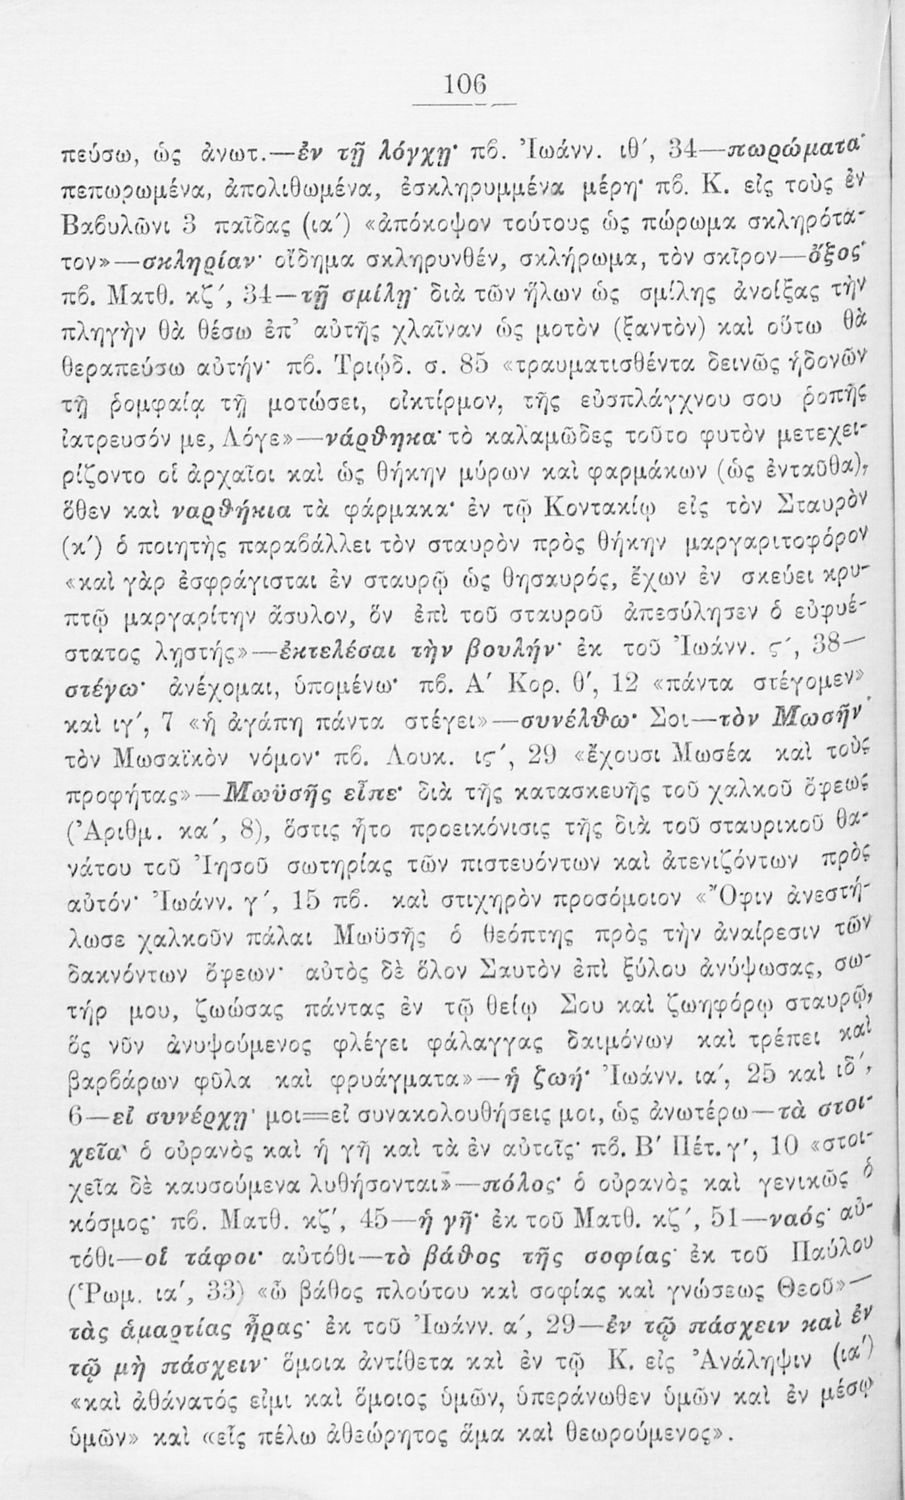 106
πεύσω, ὡς ἀνωτ.—ἐν τῇ λόγχῃ· πβ. Ἰωάνν. ιθ′, 34—πωρώματα·
πεπωρωμένα, ἀπολιθωμένα, ἐσκληρυμμένα μέρη· πβ. Κ. εἰς τοὺς ἐν
Βαβυλῶνι 3 παῖδας (ια′) «ἀπόκοψον τούτους ὡς πώρωμα σκληρότα-
τον»—σκληρίαν· οἴδημα σκληρυνθέν, σκλήρωμα, τὸν σκῖρον—ὄξος·
πβ. Ματθ. κζ′, 34—τῇ σμίλῃ· διὰ τῶν ἥλων ὡς σμίλης ἀνοίξας τὴν
πληγὴν θὰ θέσω ἐπ’ αὐτῆς χλαῖναν ὡς μοτὸν (ξαντὸν) καὶ οὕτω θὰ
θεραπεύσω αὐτήν· πβ. Τριῳδ. σ. 85 «τραυματισθέντα δεινῶς ἡδονῶν
τῇ ῥομφαίᾳ τῇ μοτώσει, οἰκτίρμον, τῆς εὐσπλάγχνου σου ῥοπῆς
ἰατρευσόν με, Λόγε»—νάρθηκα· τὸ καλαμῶδες τοῦτο φυτὸν μετεχει-
ρίζοντο οἱ ἀρχαῖοι καὶ ὡς θήκην μύρων καὶ φαρμάκων (ὡς ἐνταῦθα),
ὅθεν καὶ ναρθήκια τὰ φάρμακα· ἐν τῷ Κοντακίῳ εἰς τὸν Σταυρὸν
(κ′) ὁ ποιητὴς παραβάλλει τὸν σταυρὸν πρὸς θήκην μαργαριτοφόρον
«καὶ γὰρ ἐσφράγισται ἐν σταυρῷ ὡς θησαυρός, ἔχων ἐν σκεύει κρυ-
πτῷ μαργαρίτην ἄσυλον, ὅν ἐπὶ τοῦ σταυροῦ ἀπεσύλησεν ὁ εὐφυέ-
στατος λῃστής»—ἐκτελέσαι τὴν βουλήν· ἐκ τοῦ Ἰωάνν. ς′, 38—
στέγω· ἀνέχομαι, ὑπομένω· πβ. Α′ Κορ. θ′, 12 «πάντα στέγομεν»
καὶ ιγ′, 7 «ἡ ἀγάπη πάντα στέγει»—συνέλθω· Σοι—τὸν Μωσῆν·
τὸν Μωσαϊκὸν νόμον· πβ. Λουκ. ις′, 29 «ἔχουσι Μωσέα καὶ τοὺς
προφήτας»—Μωϋσῆς εἶπε· διὰ τῆς κατασκευῆς τοῦ χαλκοῦ ὄφεως
(Ἀριθμ. κα′, 8), ὅστις ἦτο προεικόνισις τῆς διὰ τοῦ σταυρικοῦ θα-
νάτου τοῦ Ἰησοῦ σωτηρίας τῶν πιστευόντων καὶ ἀτενιζόντων πρὸς
αὐτόν· Ἰωάνν. γ′, 15 πβ. καὶ στιχηρὸν προσόμοιον «Ὄφιν ἀνεστή-
λωσε χαλκοῦν πάλαι Μωϋσῆς ὁ θεόπτης πρὸς τὴν ἀναίρεσιν τῶν
δακνόντων ὄφεων· αὐτὸς δὲ ὅλον Σαυτὸν ἐπὶ ξύλου ἀνύψωσας, σω-
τήρ μου, ζωώσας πάντας ἐν τῷ θείῳ Σου καὶ ζωηφόρῳ σταυρῷ,
ὃς νῦν ἀνυψούμενος φλέγει φάλαγγας δαιμόνων καὶ τρέπει καὶ
βαρβάρων φῦλα καὶ φρυάγματα»—ἡ ζωή· Ἰωάνν. ια′, 25 καὶ ιδ′,
6—εἰ συνέρχῃ· μοι=εἰ συνακολουθήσεις μοι, ὡς ἀνωτέρω—τὰ στοι-
χεῖα· ὁ οὐρανὸς καὶ ἡ γῆ καὶ τὰ ἐν αὐτοῖς· πβ. Β′ Πέτ. γ′, 10 «στοι-
χεῖα δὲ καυσούμενα λυθήσονται»—πόλος· ὁ οὐρανὸς καὶ γενικῶς ὁ
κόσμος· πβ. Ματθ. κζ′, 45—ἡ γῆ· ἐκ τοῦ Ματθ. κζ′, 51—ναός· αὐ-
τόθι—οἱ τάφοι· αὐτόθι—τὸ βάθος τῆς σοφίας· ἐκ τοῦ Παύλου
(Ῥωμ. ια′, 33) «ὢ βάθος πλούτου καὶ σοφίας καὶ γνώσεως Θεοῦ»—
τὰς ἁμαρτίας ἦρας· ἐκ τοῦ Ἰωάνν. α′, 29—ἐν τῷ πάσχειν καὶ ἐν
τῷ μὴ πάσχειν· ὅμοια ἀντίθετα καὶ ἐν τῷ Κ. εἰς Ἀνάληψιν (ια′)
«καὶ ἀθάνατός εἰμι καὶ ὅμοιος ὑμῶν, ὑπεράνωθεν ὑμῶν καὶ ἐν μέσῳ
ὑμῶν» καὶ «εἷς πέλω ἀθεώρητος ἅμα καὶ θεωρούμενος».